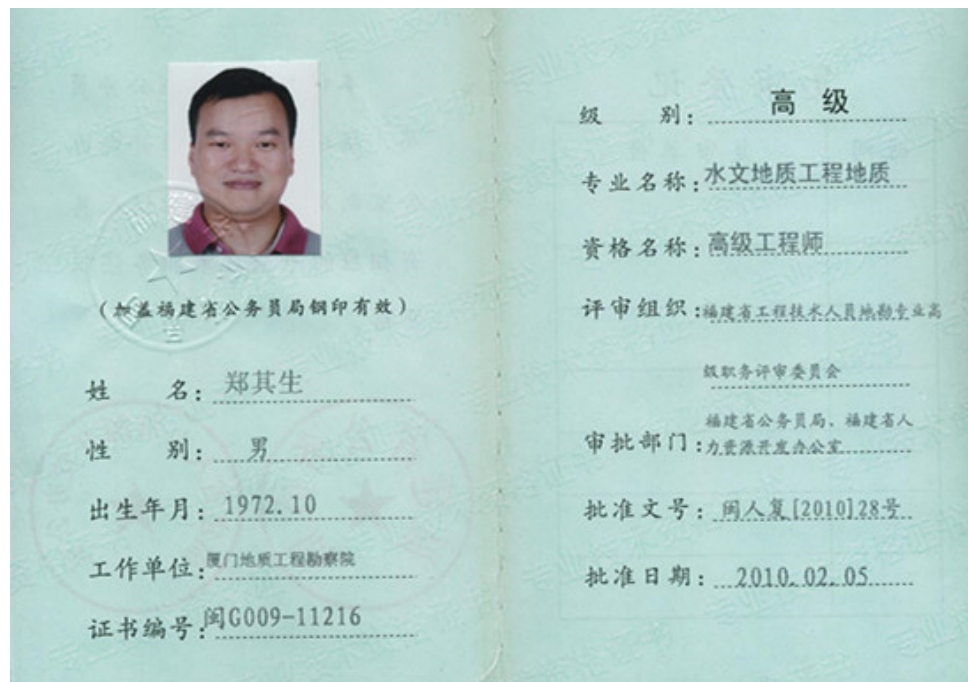 (加盖福建省公务员局钢印有效)
姓 名: 郑其生
性 别: 男
出生年月: 1972.10
工作单位: 厦门地质工程勘察院
证书编号: 闽G009-11216
级 别: 高 级
专业名称: 水文地质工程地质
资格名称: 高级工程师
评审组织: 福建省工程技术人员地勘专业高
级职务评审委员会
福建省公务员局、福建省人
审批部门: 力资源开发办公室
批准文号: 闽人复[2010]28号
批准日期: 2010.02.05